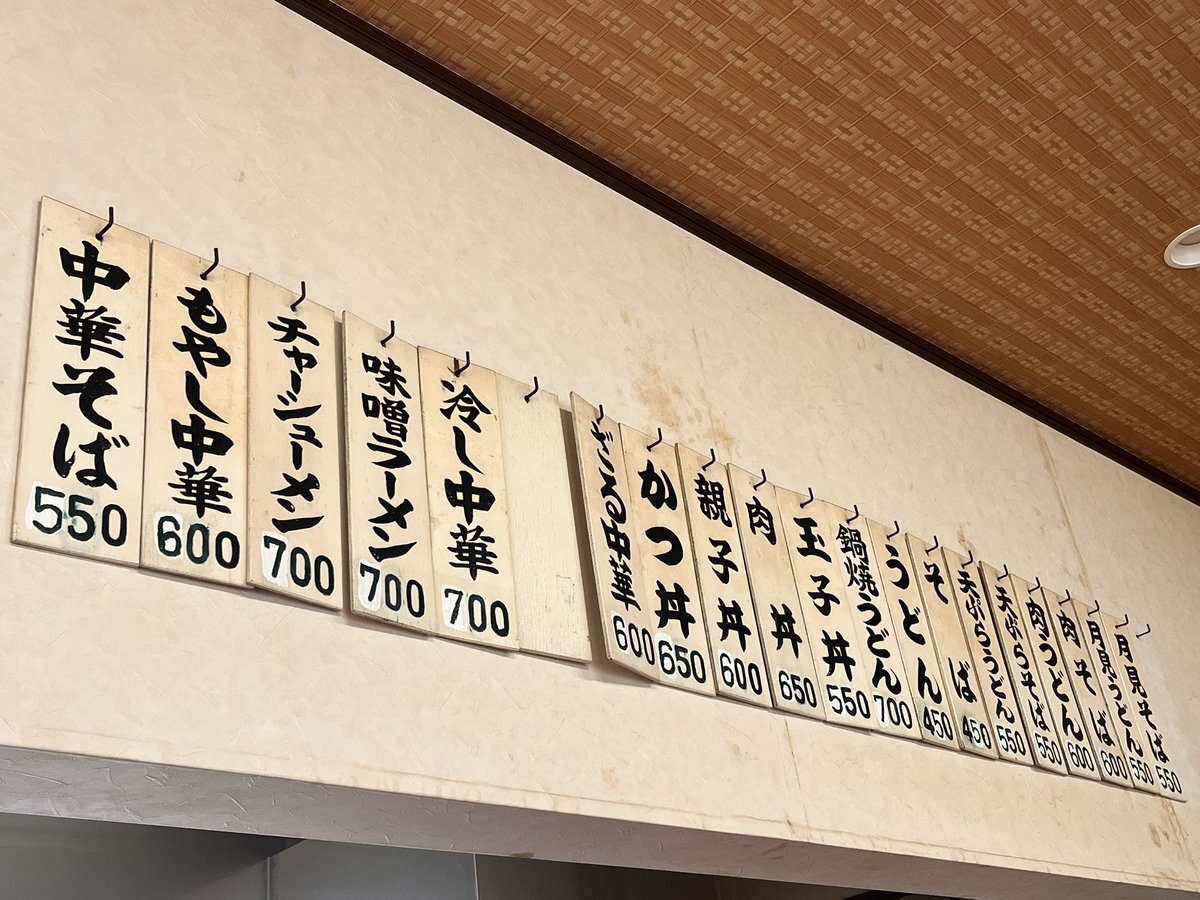 中華そば 550
もやし中華 600
チャーシューメン 700
味噌ラーメン 700
冷し中華 700
ざる中華 600
かつ丼 650
親子丼 600
肉丼 650
玉子丼 550
鍋焼うどん 700
うどん 450
そば 450
天ぷらうどん 550
天ぷらそば 550
肉うどん 600
肉そば 600
月見うどん 550
月見そば 550